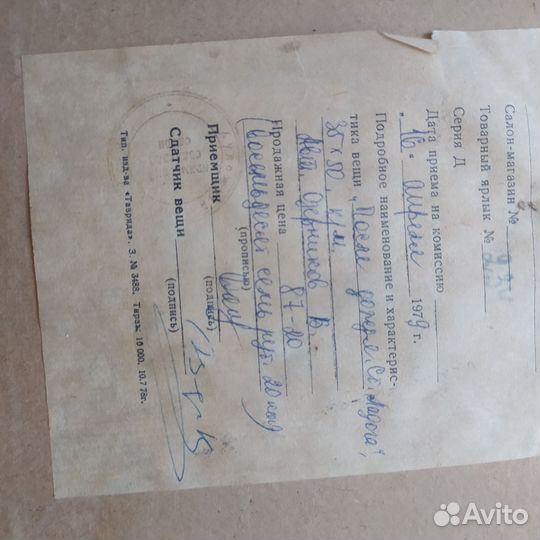 Салон-магазин №
Товарный ярлык №
Серия Д
Дата приема на комиссию
„16" апреля 1979 г.
Подробное наименование и характерис-
тика вещи „После дождя. Ст. Ладога",
35 х 50, к/м,
Авт. Озерников В.
Продажная цена 87-20
(прописью)
(восемьдесят семь руб. 20 коп)
Приемщик
(подпись)
Сдатчик вещи
(подпись)
Тип. изд-ва «Таврида», З. № 3488. Тираж 10 000, 10.7.78г.
Avito